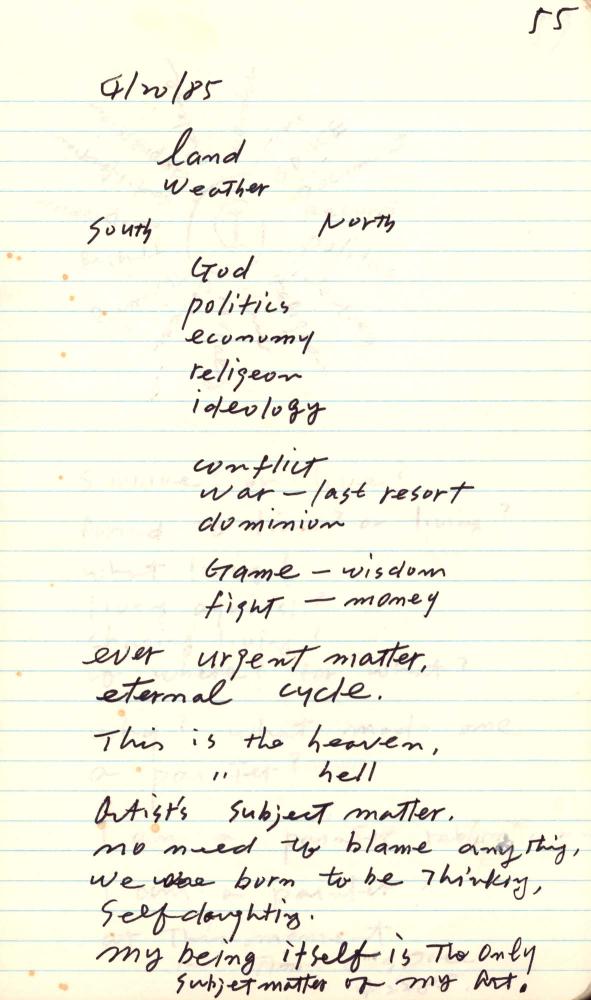 55
4/20/85
land
weather
South North
God
politics
economy
religeon
ideology
conflict
war – last resort
dominion
Game – wisdom
fight – money
ever urgent matter,
eternal cycle.
This is the heaven,
" hell
Artist's subject matter.
no need to blame any thing,
we were born to be Thinking,
Self-doughting.
my being itself is The Only
subjet matter of my Art.